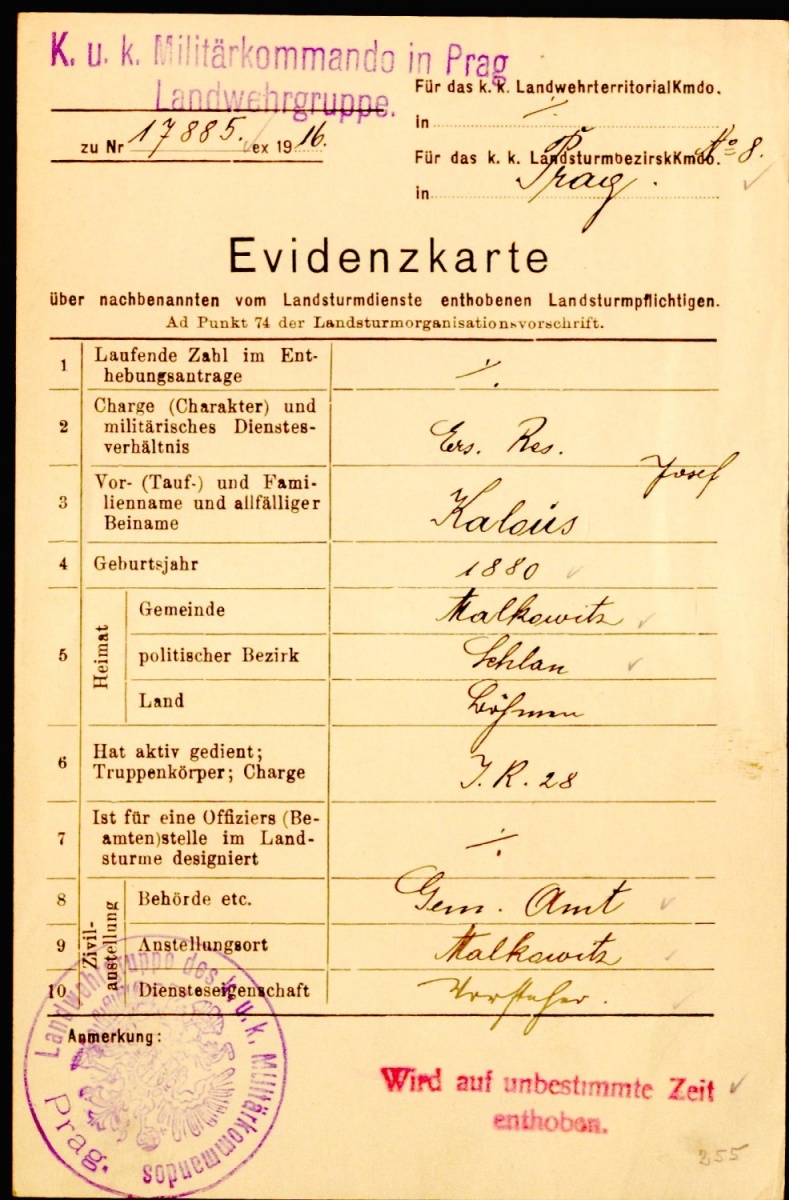 K. u. k. Militärkommando in Prag
Landwehrgruppe.
zu Nr 17885. ex 1916.
Für das k. k. LandwehrterritorialKmdo.
in ./.
Für das k. k. LandsturmbezirksKmdo. No 8.
in Prag.
Evidenzkarte
über nachbenannten vom Landsturmdienste enthobenen Landsturmpflichtigen.
Ad Punkt 74 der Landsturmorganisationsvorschrift.
1 Laufende Zahl im Ent-
hebungsantrage ./.
2 Charge (Charakter) und
militärisches Dienstes-
verhältnis Ers. Res.
3 Vor- (Tauf-) und Fami-
lienname und allfälliger
Beiname Kaloús Josef
4 Geburtsjahr 1880
5 Heimat
Gemeinde Malkowitz
politischer Bezirk Schlan
Land Böhmen
6 Hat aktiv gedient;
Truppenkörper; Charge J. R. 28
7 Ist für eine Offiziers (Be-
amten)stelle im Land-
sturme designiert ./.
Zivil-
anstellung
8 Behörde etc. Gem. Amt
9 Anstellungsort Malkowitz
10 Diensteseigenschaft Vorsteher.
Anmerkung:
Landwehrgruppe des k. u. k. Militärkommandos
Prag.
Wird auf unbestimmte Zeit
enthoben.
355